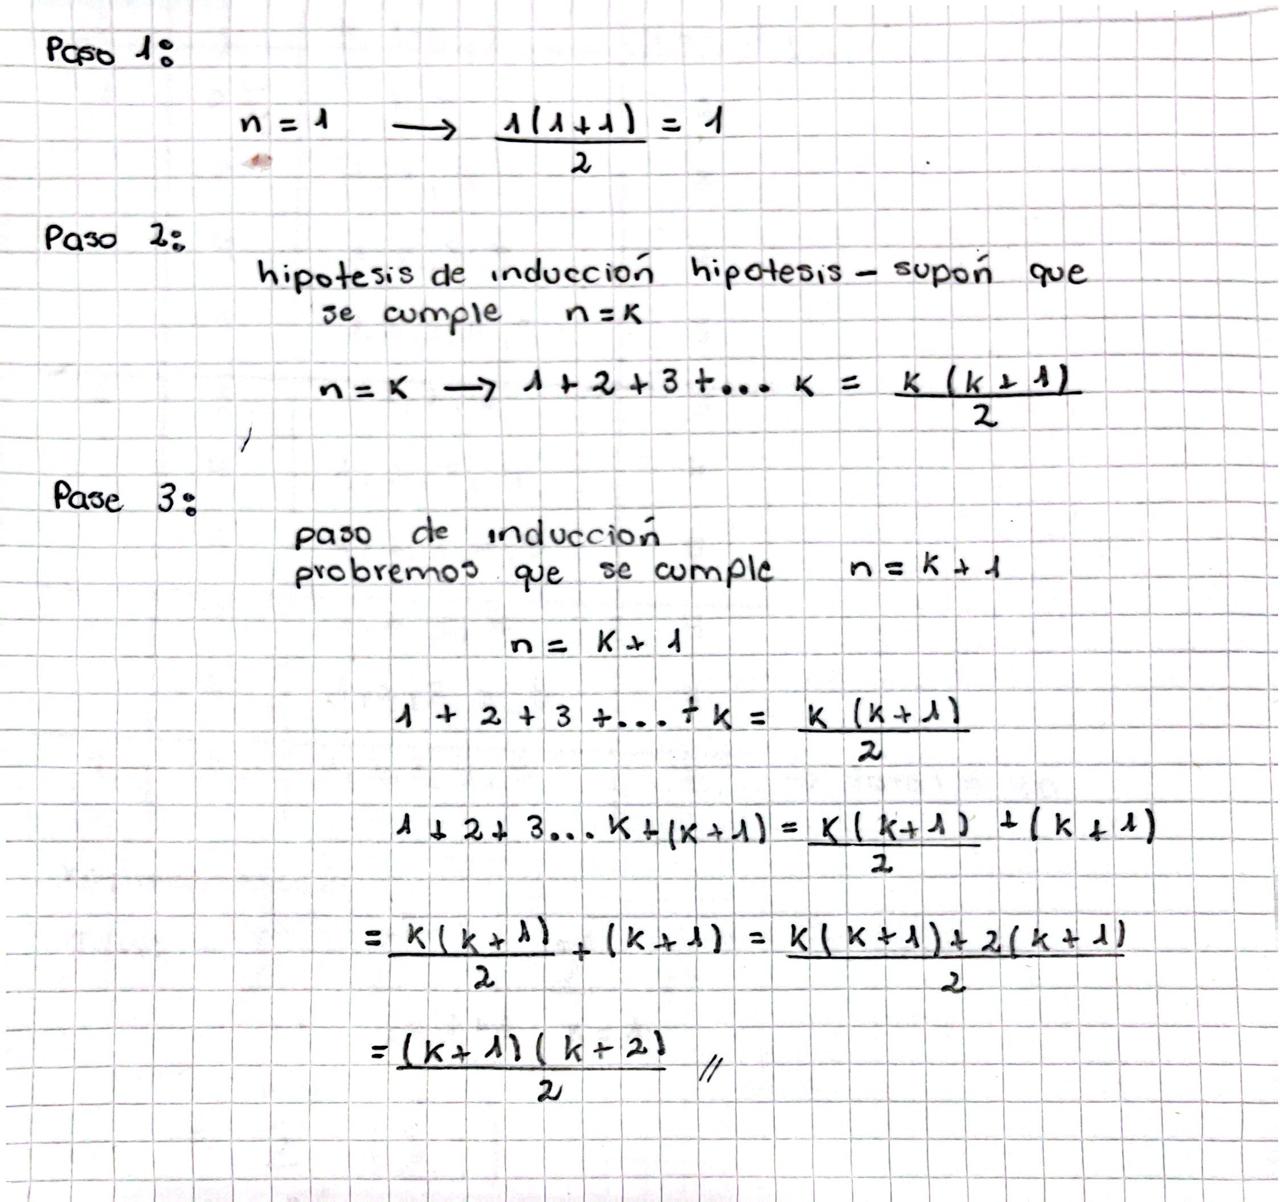 Paso 1:
n = 1 → 1(1+1)/2 = 1
Paso 2:
hipotesis de induccioń hipotesis - supoń que
se cumple n = k
n = k → 1 + 2 + 3 + ... k = k (k + 1)/2
Pase 3:
paso de induccioń
probremos que se cumple n = k + 1
n = k + 1
1 + 2 + 3 + ... + k = k (k+1)/2
1 + 2 + 3 ... k + (k+1) = k(k+1)/2 + (k + 1)
= k(k+1)/2 + (k+1) = k(k+1)+2(k+1)/2
= (k+1)(k+2)/2 //